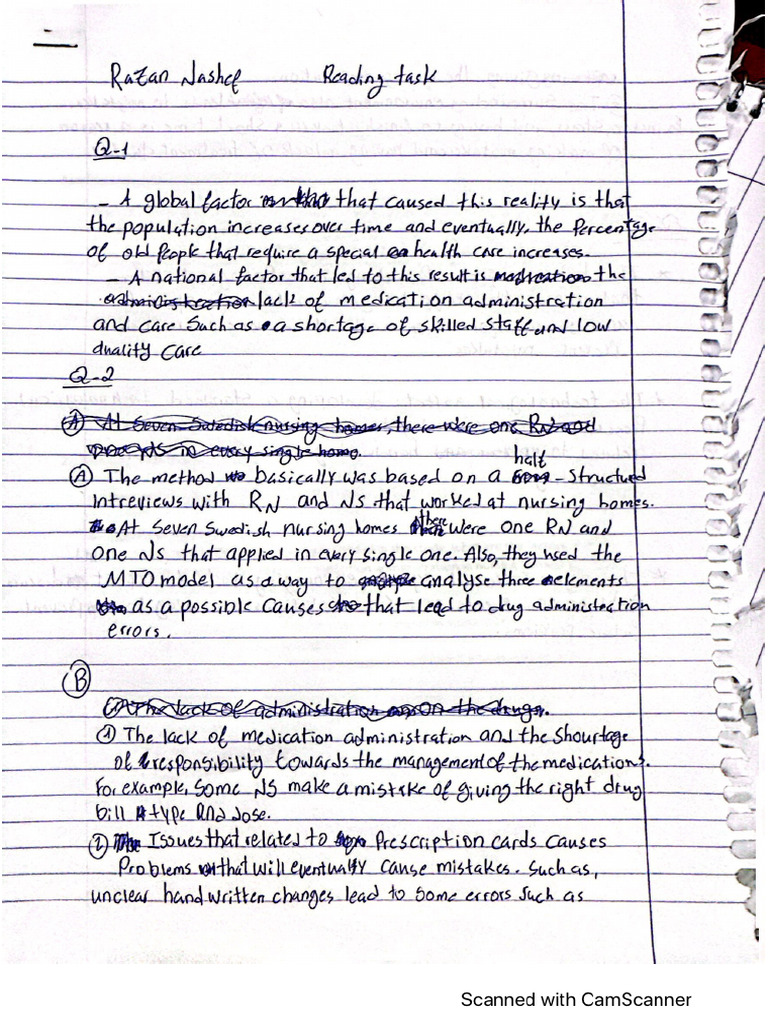 Razan Nashef Reading task
Q-1
- A global factor that caused this reality is that
the population increases over time and eventually, the Percentage
of old People that require a special health care increases.
- A national factor that led to this result is the
lack of medication administration
and care Such as a shortage of skilled staff and low
quality care
Q-2
(A) At Seven Swedish nursing homes, there were one RN and
one NS in every single home.
(A) The method basically was based on a half - Structured
Intreviews with RN and NS that worked at nursing homes.
At Seven Swedish nursing homes there were one RN and
one NS that applied in every single one. Also, they used the
MTO model as a way to analyse three elements
as a possible causes that lead to drug administration
errors.
(B)
(1) The lack of administration on the drugs.
(1) The lack of medication administration and the shourtage
of responsibility towards the management of the medications.
For example, some NS make a mistake of giving the right drug
bill type and dose.
(2) Issues that related to Prescription cards causes
Problems that will eventually cause mistakes. Such as,
unclear handwritten changes lead to some errors such as
Scanned with CamScanner